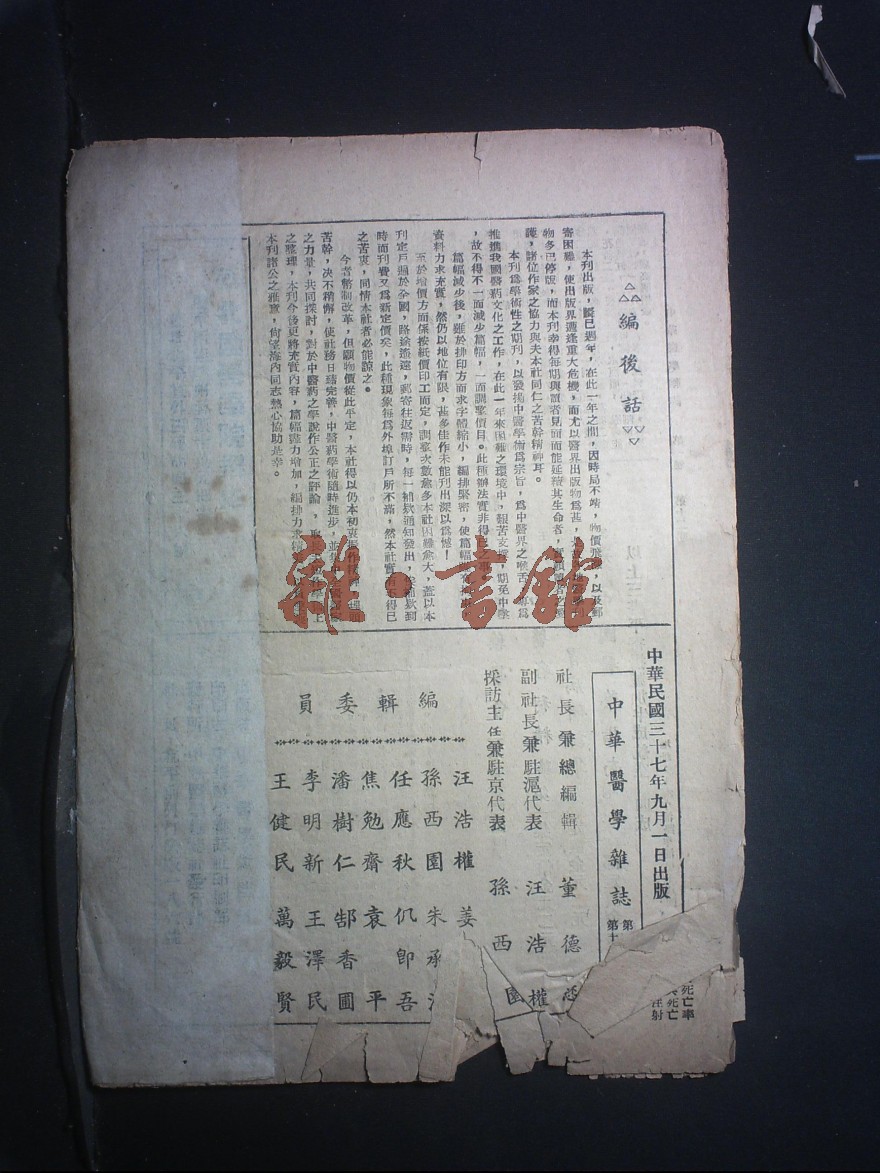 編後話
本刊出版，瞬已週年，在此一年之間，因時局不靖，物價飛，以及郵
寄困難，使出版界遭逢重大危機，而尤以醫界出版物爲甚，
物多已停版，而本刊幸得每期與讀者見面而能延續其生命者，
護，諸位作家之協力與夫本社同仁之苦幹精神耳。
本刊爲學術性之期刊，以發揚中醫學術爲宗旨，爲中醫界之喉舌，專爲
推進我國醫藥文化之工作，在此一年來困難之環境中，艱苦支撐，期免中墜
，故不得不一面減少篇幅，一面調整價目。此種辦法實非得
篇幅減少後，雖於排印方面求字體縮小，編排緊密，使篇幅
資料力求充實，然仍以地位有限，甚多佳作未能刊出深以爲憾！
至於增價方面係按紙價印工而定，調整次數愈多本社困難愈大，蓋以本
刊定戶遍於全國，路途遙遠，郵寄往返需時，每一補欵通知發出，補欵到
時而刊費又爲新定價矣，此種現象每爲外埠訂戶所不滿，然本社實得已
之苦衷，同情本社者必能諒之。
今者幣制改革，但願物價從此平定，本社得以仍本初衷
苦幹，決不稍懈，使社務日臻完善，中醫藥學術隨時進步，並
之力量，共同探討，對於中醫藥之學說作公正之評論，取上
之整理，本刊今後更將充實內容，篇幅儘力增加，編排力求
本刊諸公之雅意，尚望海內同志熱心協助是幸。
中華民國三十七年九月一日出版
中華醫學雜誌
第
第十
社長兼總編輯 董德
副社長兼駐滬代表 汪浩權
採訪主任兼駐京代表 孫西園
編輯委員
汪浩權 姜
孫西園 朱承
任應秋 仉卽吾
焦勉齋 袁平
潘樹仁 郜香圃
李明新 王澤民
王健民 萬毅賢
死亡率
死亡
注射
雜·書館